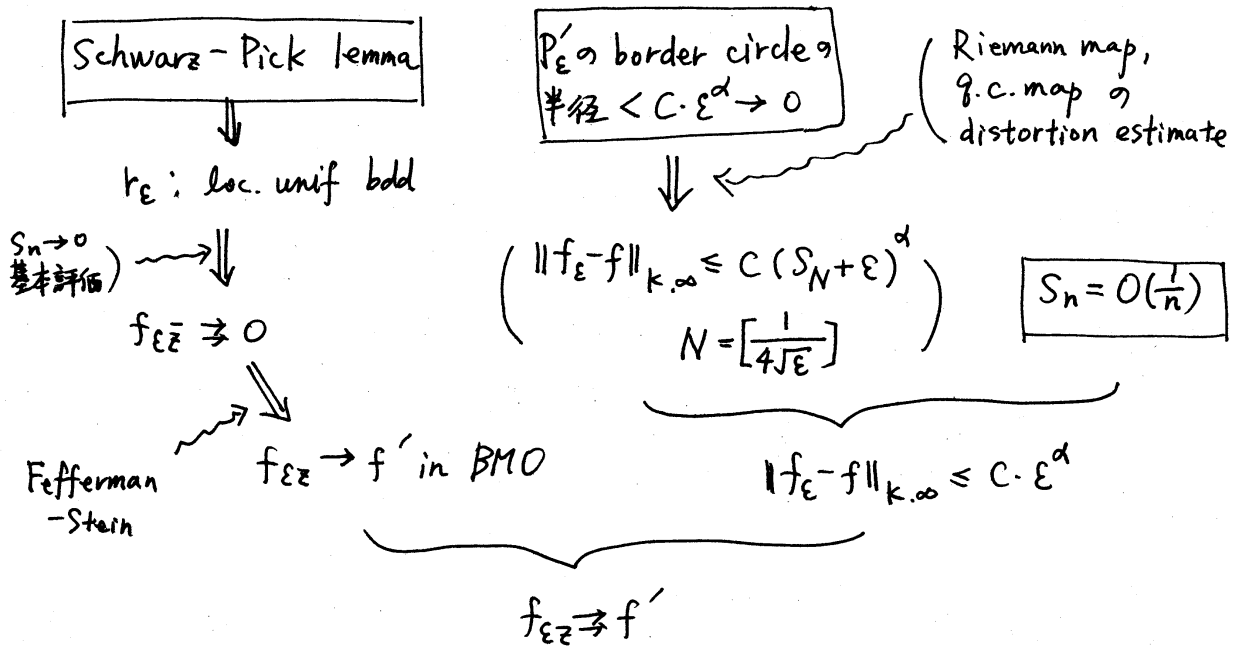 Schwarz-Pick lemma
⇓
r_ε : loc. unif bdd
S_n→0
基本評価)
⇓
f_{εz̄} ⇉ 0
Fefferman
-Stein
f_{εz} → f′ in BMO
P′_ε の border circle の
半径 < C·ε^α → 0
(Riemann map,
q.c. map の
distortion estimate
⇓
(‖f_ε-f‖_{K,∞} ≤ C(S_N+ε)^α
N=[1/(4√ε)])
S_n = O(1/n)
‖f_ε-f‖_{K,∞} ≤ C·ε^α
f_{εz} ⇉ f′